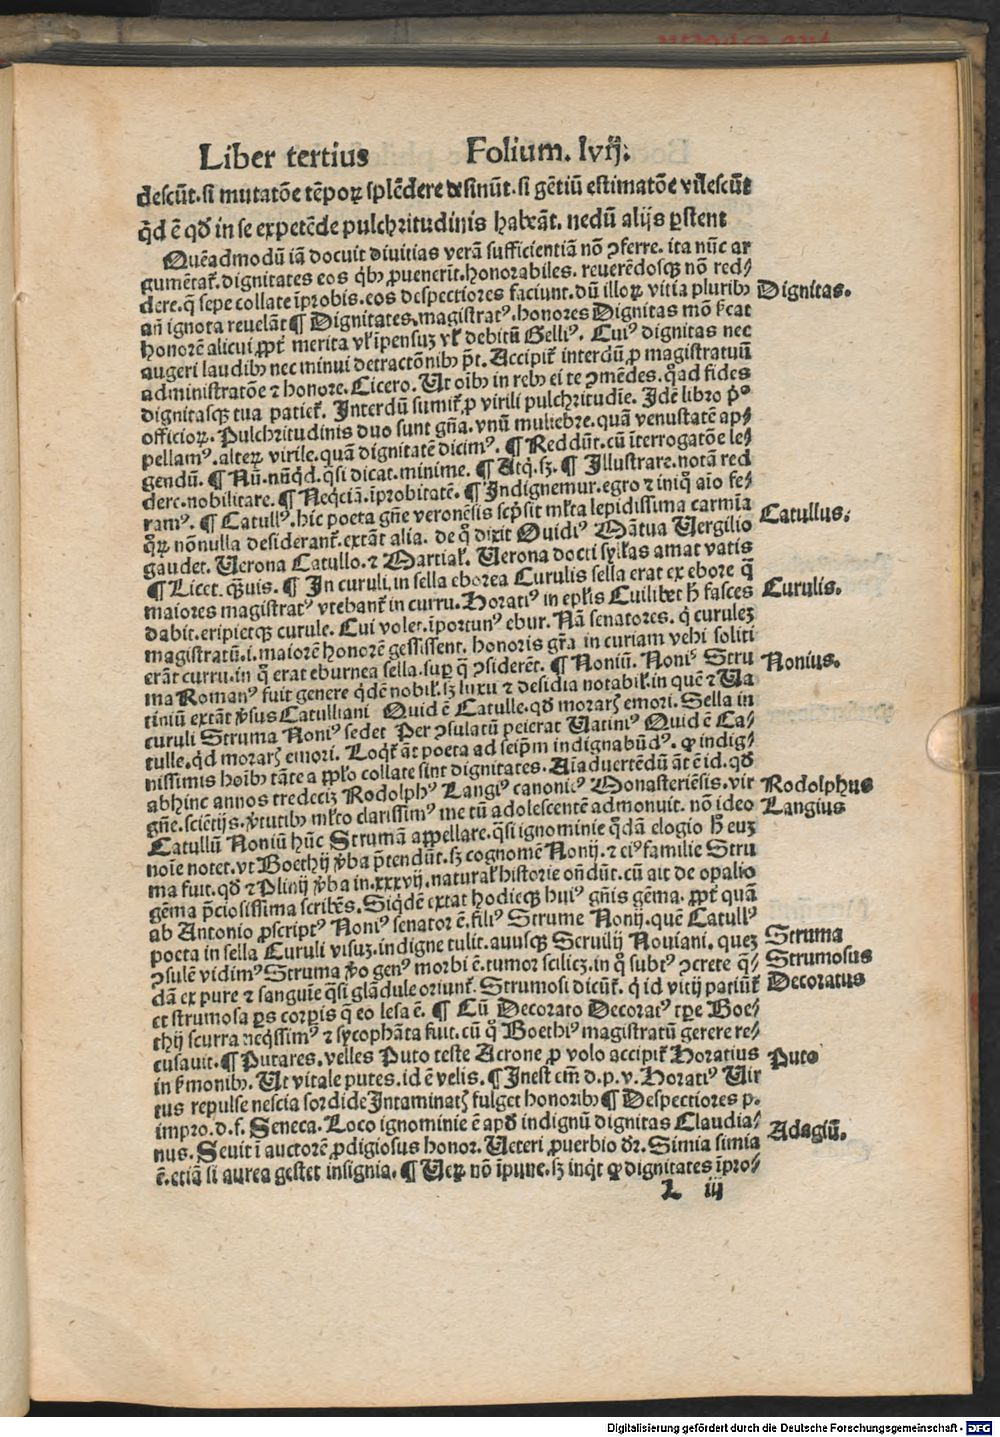 Liber tertius Folium. lvij.
descūt. si mutatōe tēpoꝝ splēdere desinūt. si gētiū estimatōe vilescūt
qd̄ ē qđ in se expetēde pulchritudinis habeāt. nedū alijs p̱stent
Quēadmodū iā docuit diuitias verā sufficientiā nō ꝯferre. ita nūc ar
gumētat᷑. dignitates eos qͥbꝫ ꝓuenerīt. honorabiles. reuerēdosqꝫ nō red/
dere. q̄ sepe collate īprobis. eos despectiores faciunt. dū illoꝝ vitia pluribꝫ
Dignitas.
añ ignota reuelāt ¶ Dignitates. magistratꝰ. honores Dignitas mō ẜcat
honorē alicui ꝓpt̓ merita vł īpensuꝫ vł debitū Gelliꝰ. Cuiꝰ dignitas nec
augeri laudibꝫ nec minui detractōnibꝫ p̄t. Accipit᷑ interdū ꝓ magistratuū
administratōe ⁊ honore. Cicero. Ut oībꝫ in rebꝫ ei te ꝯmēdes. qͦad fides
dignitasqꝫ tua patiet᷑. Interdū sumit᷑ ꝓ virili pulchritudīe. Idē libro pͥº
officioꝝ. Pulchritudinis duo sunt gn̄a. vnū muliebre. quā venustatē ap/
pellamꝰ. alteꝝ virile. quā dignitatē dicimꝰ. ¶ Reddūt. cū īterrogatōe le/
gendū. ¶ Nū. nūqͥd. qͣsi dicat. minime. ¶ Atqͥ. sꝫ. ¶ Illustrare. notā red
dere. nobilitare. ¶ Neqͥciā. īprobitatē. ¶ Indignemur. egro ⁊ iniqͦ aīo fe/
ramꝰ. ¶ Catullꝰ. hic poeta gn̄e veronēsis scp̄sit młta lepidissima carmīa
Catullus.
qͦꝝ nōnulla desiderant᷑. extāt alia. de qͦ dixit Ouidiꝰ Mātua Uergilio
gaudet. Uerona Catullo. ⁊ Martiał. Uerona docti syłłas amat vatis
¶ Licet. qͣꝫuis. ¶ In curuli. in sella eborea Curulis sella erat ex ebore q̄
Curulis.
maiores magistratꝰ vtebant᷑ in curru. Horatiꝰ in epłis Cuilibet h̄ fasces
dabit. eripietqꝫ curule. Cui volet. īportunꝰ ebur. Nā senatores. qͥ curuleꝫ
magistratū. i. maiorē honorē gessissent. honoris gr̄a in curiam vehi soliti
erāt curru. in qͦ erat eburnea sella. suꝑ q̄ ꝯsiderēt. ¶ Noniū. Noniꝰ Stru
Nonius.
ma Romanꝰ fuit genere qͥdē nobił. sꝫ luxu ⁊ desidia notabił. in quē ⁊ Ua
tiniū extāt ꝟsus Catulliani Quid ē Catulle. qđ moraris emori. Sella in
curuli Struma Noniꝰ sedet Per ꝯsulatū peierat Uatiniꝰ Quid ē Ca/
tulle. qđ moraris emori. Loqͥt᷑ āt poeta ad seip̄m indignabūdꝰ. ꝙ indig/
nissimis hoībꝫ tāte a ꝓpło collate sint dignitates. Aīaduertēdū āt ē id. qđ
abhinc annos tredeciꝫ Rodolphꝰ Langiꝰ canonicꝰ Monasteriēsis. vir
Rodolphus
gn̄e. sciētijs. ꝟtutibꝫ młto clarissimꝰ me tū adolescentē admonuit. nō ideo
Langius
Catullū Noniū hūc Strumā appellare. qͣsi ignominie qͦdā elogio h̄ euꝫ
noīe notet. vt Boethij ꝟba p̄tendūt. sꝫ cognomē Nonij. ⁊ eiꝰ familie Stru
ma fuit. qđ ⁊ Plinij ꝟba in. xxxvij. naturał historie ondūt. cū ait de opalio
gēma p̄ciosissima scribēs. Siqͥdē extat hodieqꝫ huiꝰ gn̄is gēma. ꝓpt̓ quā
ab Antonio ꝓscriptꝰ Noniꝰ senator ē. filiꝰ Strume Nonij. quē Catullꝰ
poeta in sella Curuli visuꝫ. indigne tulit. auusqꝫ Seruilij Nouiani. queꝫ
Struma
ꝯsulē vidimꝰ Struma ꝟo genꝰ morbi ē. tumor scilicꝫ. in qͦ subtꝰ ꝯcrete q̄/
Strumosus
dā ex pure ⁊ sanguīe qͣsi glādule oriunt᷑. Strumosi dicūt᷑. qͥ id vitij patiūt᷑
Decoratus
et strumosa p̱s corp̱is q̄ eo lesa ē. ¶ Cū Decorato Decoratꝰ tp̱e Boe/
thij scurra neqͥssimꝰ ⁊ sycophāta fuit. cū qͦ Boethiꝰ magistratū gerere re/
cusauit. ¶ Putares. velles Puto teste Acrone ꝓ volo accipit᷑ Horatius
Puto
in ẜmonibꝫ. Ut vitale putes. id ē velis. ¶ Inest em̄. d. p. v. Horatiꝰ Uir
tus repulse nescia sordide Intaminatis fulget honoribꝫ ¶ Despectiores p.
impro. d. f. Seneca. Loco ignominie ē apđ indignū dignitas Claudia/
Adagiū.
nus. Seuit ī auctorē ꝓdigiosus honor. Ueteri ꝓuerbio dr̄. Simia simia
ē. etiā si aurea gestet insignia. ¶ Ueꝝ nō īpune. sꝫ inqͥt ꝙ dignitates īpro/
L iij
Digitalisierung gefördert durch die Deutsche Forschungsgemeinschaft - DFG